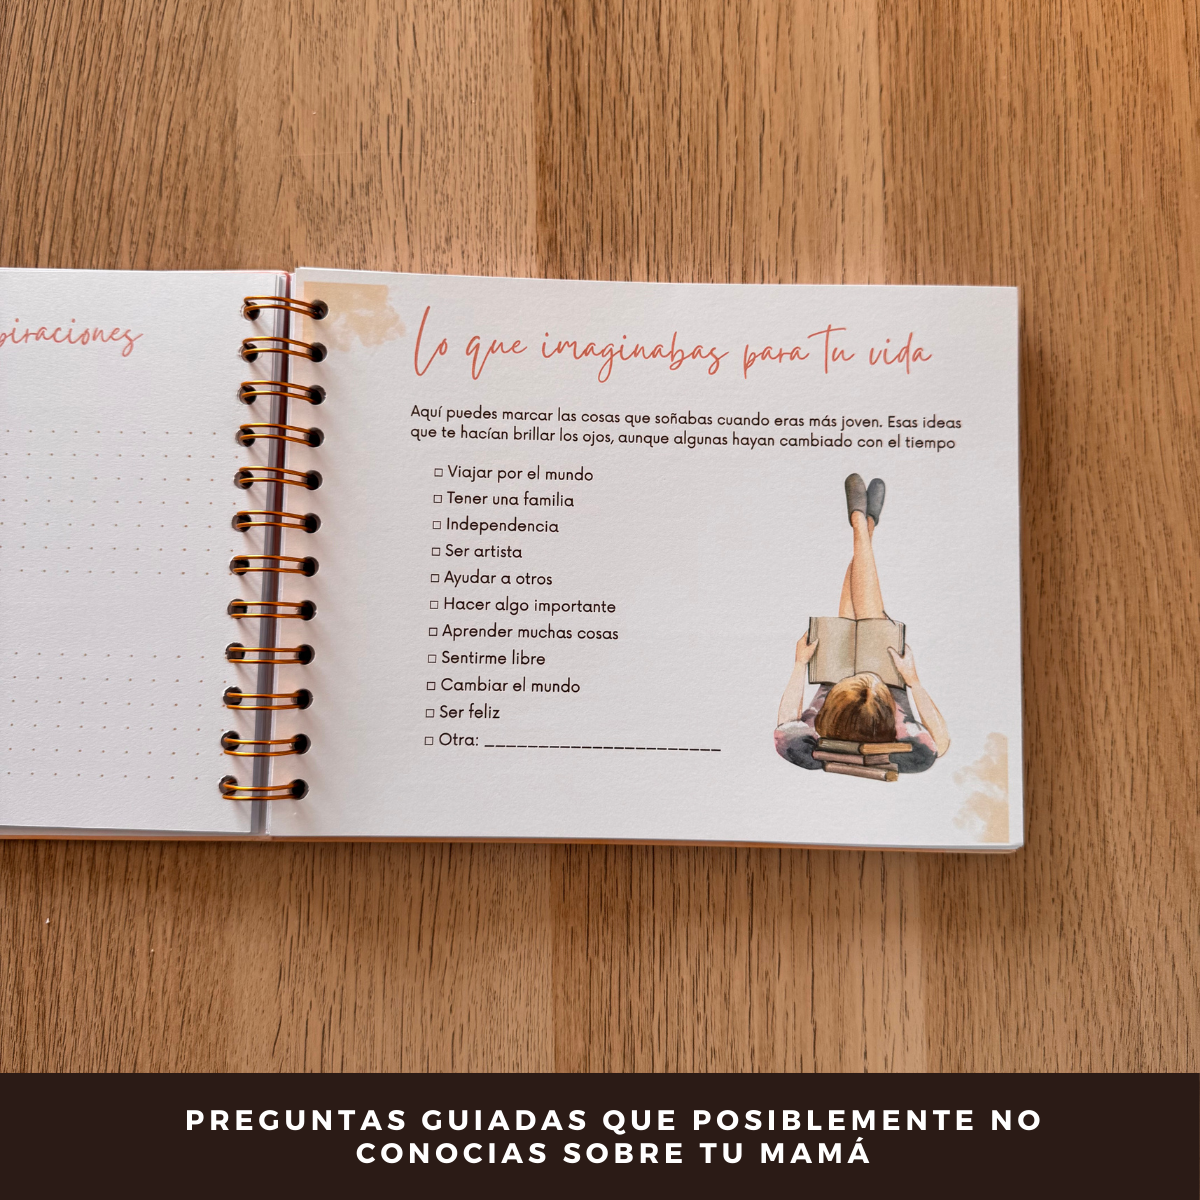 Lo que imaginabas para Tu vida
Aquí puedes marcar las cosas que soñabas cuando eras más joven. Esas ideas
que te hacían brillar los ojos, aunque algunas hayan cambiado con el tiempo
□ Viajar por el mundo
□ Tener una familia
□ Independencia
□ Ser artista
□ Ayudar a otros
□ Hacer algo importante
□ Aprender muchas cosas
□ Sentirme libre
□ Cambiar el mundo
□ Ser feliz
□ Otra: ______________________
PREGUNTAS GUIADAS QUE POSIBLEMENTE NO
CONOCIAS SOBRE TU MAMÁ